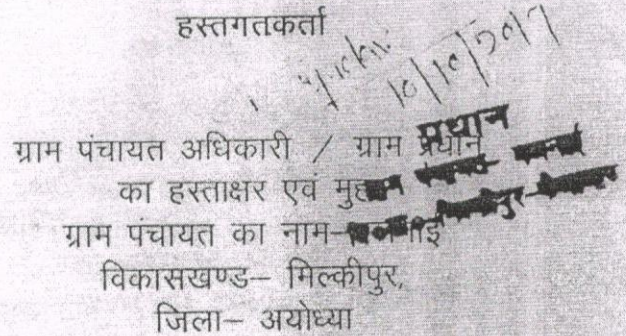 हस्तगतकर्ता
10/10/2017
ग्राम पंचायत अधिकारी / ग्राम प्रधान
प्रधान
का हस्ताक्षर एवं
ग्राम पंचायत का नाम–
विकासखण्ड– मिल्कीपुर,
जिला– अयोध्या